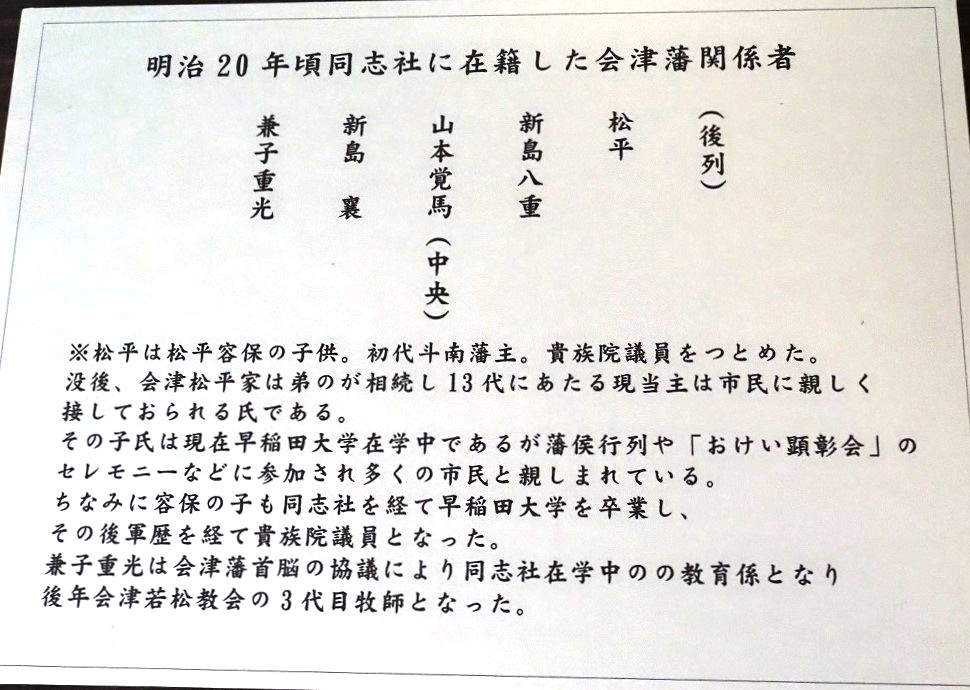 明治20年頃同志社に在籍した会津藩関係者
(後列)
松平
新島八重
山本覚馬(中央)
新島 襄
兼子重光
※松平は松平容保の子供。初代斗南藩主。貴族院議員をつとめた。
没後、会津松平家は弟のが相続し13代にあたる現当主は市民に親しく
接しておられる氏である。
その子氏は現在早稲田大学在学中であるが藩侯行列や「おけい顕彰会」の
セレモニーなどに参加され多くの市民と親しまれている。
ちなみに容保の子も同志社を経て早稲田大学を卒業し、
その後軍歴を経て貴族院議員となった。
兼子重光は会津藩首脳の協議により同志社在学中のの教育係となり
後年会津若松教会の3代目牧師となった。